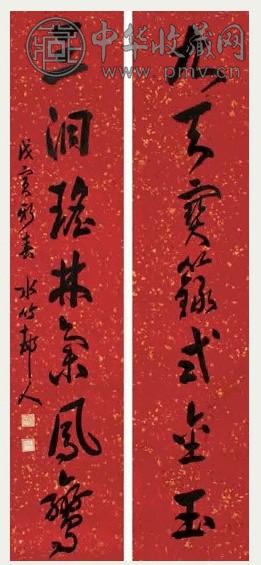 中华收藏网
www.pmv.cn
九天寶籙式金玉
三洞瑤林集鳳鸞
戊寅新春 水竹邨人